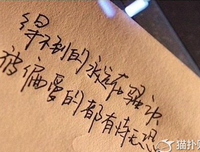 得不到的永远在骚动
被偏爱的都有恃无恐
猫扑